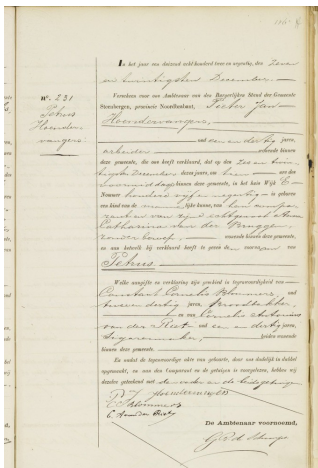 No. 231
Petrus
Hoendervangers
In het jaar van duizend acht honderd vier en negentig, den zeven
en twintigsten December
Verscheen voor ons Ambtenaar van den Burgerlijken Stand der Gemeente
Steenbergen, provincie Noordbrabant, Pieter Jan
Hoendervangers
oud een en dertig jaren,
arbeider wonende binnen
deze gemeente, die ons heeft verklaard, dat op den zes en twin-
tigsten December dezes jaars, ten ure des
voormiddags binnen deze gemeente, in het huis Wijk E
Nummer honderd vijf en negentig is geboren
een kind van de kunne, van hem compa-
rant en van zijne echtgenoote Anna
Catharina van der Bruggen,
zonder beroep, wonende binnen deze gemeente,
en aan hetwelk hij verklaard heeft te geven den voornaam van
Petrus
Welke aangifte en verklaring zijn geschied in tegenwoordigheid van
Constant Cornelis
oud twee en dertig jaren, broodbakker,
en van Cornelis Antonius
van der Riet oud een en dertig jaren,
beiden wonende
binnen deze gemeente.
En nadat de tegenwoordige akte van geboorte, door ons dadelijk in dubbel
opgemaakt, en aan den Comparant en de getuigen is voorgelezen, hebben wij
dezelve geteekend met den vader en de getuigen
P J Hoendervangers
C van der Riet
De Ambtenaar voornoemd,